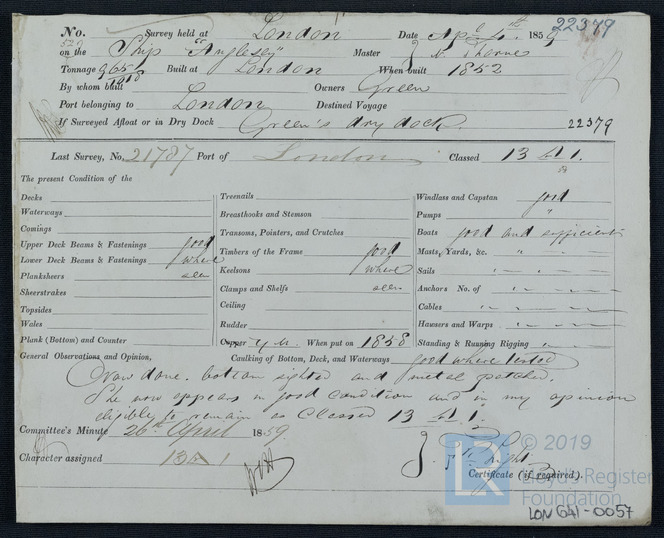 No. Survey held at London Date Apl 4th 1859 22379
529 on the Ship "Anglesey" Master Thornes
Tonnage 965 Built at London When built 1852
By whom built Owners Green
Port belonging to London Destined Voyage
If Surveyed Afloat or in Dry Dock Green's dry dock. 22379
Last Survey, No. 21787 Port of London Classed 13 A 1.
The present Condition of the
Decks
Waterways
Comings
Upper Deck Beams & Fastenings good
Lower Deck Beams & Fastenings where
Planksheers seen
Sheerstrakes
Topsides
Wales
Plank (Bottom) and Counter
Treenails
Breasthooks and Stemson
Transoms, Pointers, and Crutches
Timbers of the Frame good
Keelsons where
Clamps and Shelfs seen
Ceiling
Rudder
Copper Y.M. When put on 1858
Windlass and Capstan good
Pumps "
Boats good and sufficient
Masts, Yards, &c. "
Sails " "
Anchors No. of " "
Cables " "
Hausers and Warps " "
Standing & Running Rigging " "
General Observations and Opinion, Caulking of Bottom, Deck, and Waterways good where tested
done. bottom sighted and metal patched.
She now appears in good condition and in my opinion
eligible to remain as Classed 13 A 1.
Committee's Minute 26th April 1859
Character assigned 13A 1
Certificate (if required).
© 2019
LR
Lloyd's Register
Foundation
LON 641-0057